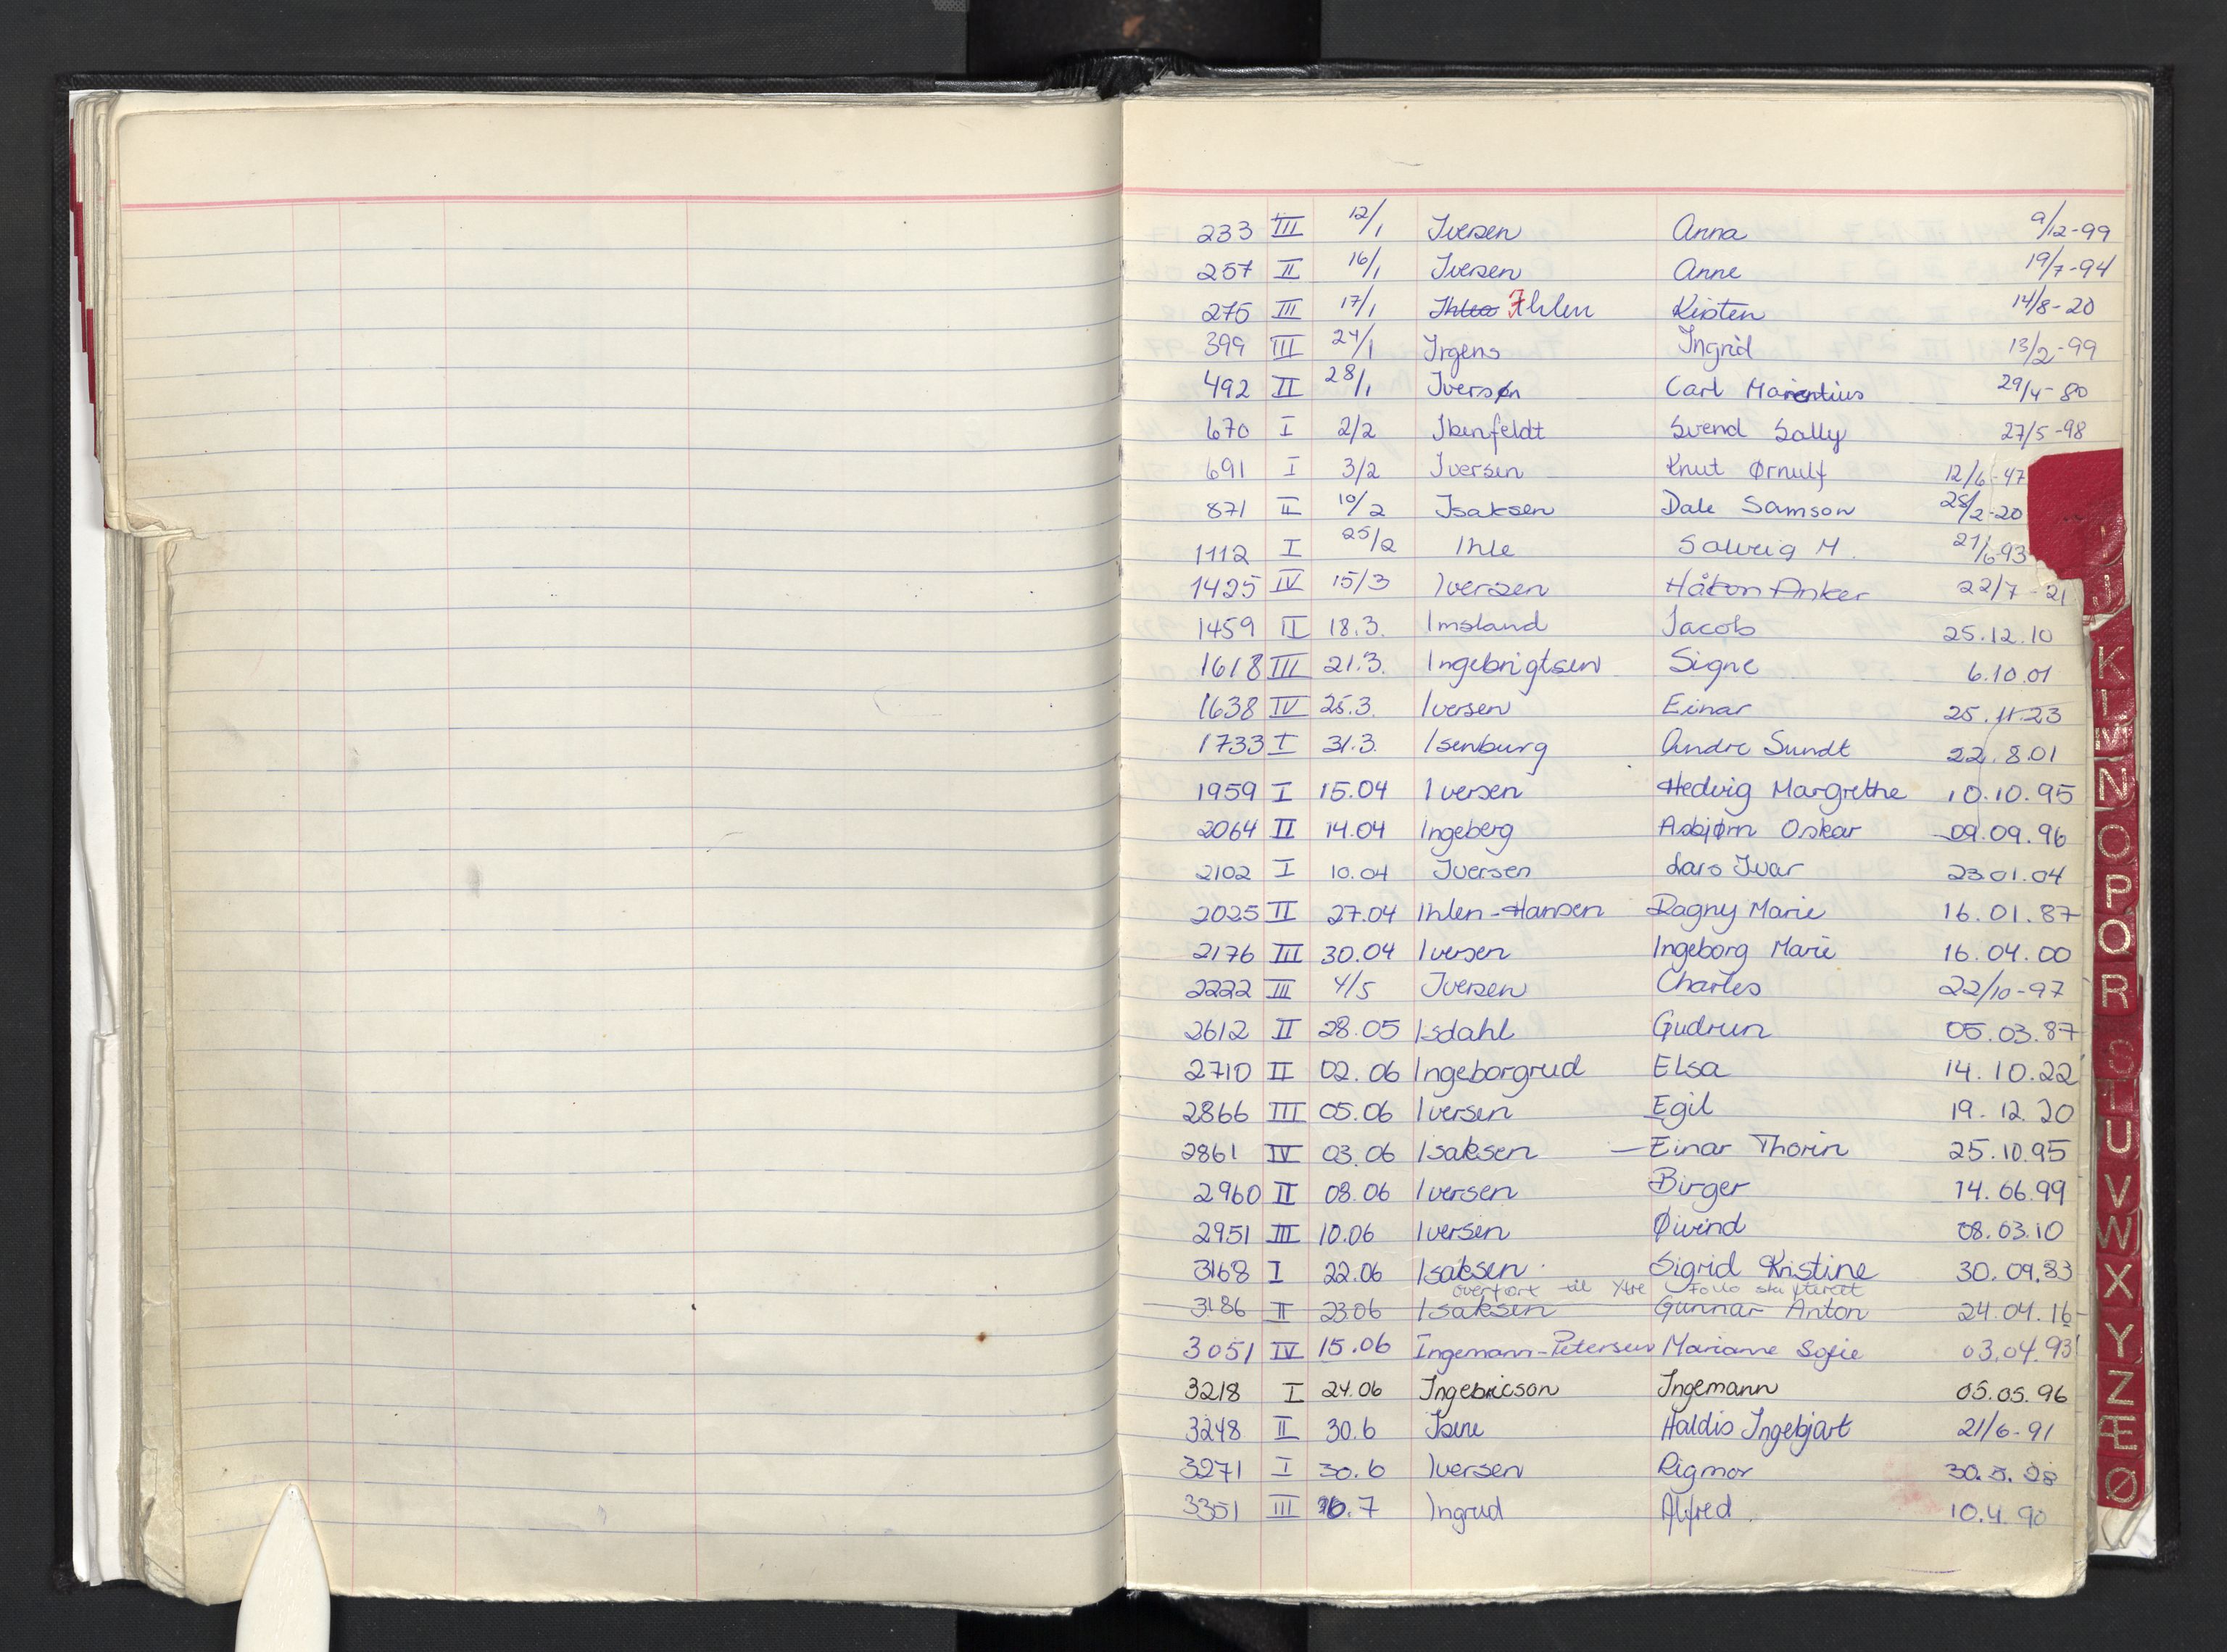 233 III 12/1 Iversen Anna 9/12-99
257 II 16/1 Iversen Anne 19/7-94
275 III 17/1 Ihlen Kisten 14/8-20
399 III 24/1 Irgens Ingrid 13/2-99
492 II 28/1 Iversøn Carl Marentius 29/4-80
670 I 2/2 Ibenfeldt Svend Sally 27/5-98
691 I 3/2 Iversen Knut Ørnulf 12/6-47
871 II 10/2 Isaksen Dale Samson 28/2-20
1112 I 25/2 Ihle Solveig M. 21/6-93
1425 IV 15/3 Iversen Håkon Anker 22/7-21
1459 II 18.3. Imsland Jacob 25.12.10
1618 III 21.3. Ingebrigtsen Signe 6.10.01
1638 IV 25.3. Iversen Einar 25.11.23
1733 I 31.3. Isenburg Andre Sundt 22.8.01
1959 I 15.04 Iversen Hedvig Margrethe 10.10.95
2064 II 14.04 Ingeberg Asbjørn Oskar 09.09.96
2102 I 10.04 Iversen Lars Ivar 23.01.04
2025 II 27.04 Ihlen-Hansen Dagny Marie 16.01.87
2176 III 30.04 Iversen Ingeborg Marie 16.04.00
2222 III 4/5 Iversen Charles 22/10-97
2612 II 28.05 Isdahl Gudrun 05.03.87
2710 II 02.06 Ingeborgrud Elsa 14.10.22
2866 III 05.06 Iversen Egil 19.12.20
2861 IV 03.06 Isaksen — Einar Thorin 25.10.95
2960 II 08.06 Iversen Birger 14.06.99
2951 III 10.06 Iversen Øivind 08.03.10
3168 I 22.06 Isaksen Sigrid Kristine 30.09.83
overført til Ytre Follo skifterett
3186 II 23.06 Isaksen Gunnar Anton 24.04.16
3051 IV 15.06 Ingemann-Petersen Marianne Sofie 03.04.93
3218 I 24.06 Ingebricson Ingemann 05.05.96
3248 II 30.6 Isene Haldis Ingebjørt 21/6-91
3271 I 30.6 Iversen Rigmor 30.5.28
3351 III 16.7 Ingrud Alfred 10.4.90
J
K
L
M
N
O
P
Q
R
S
T
U
V
W
X
Y
Z
Æ
Ø